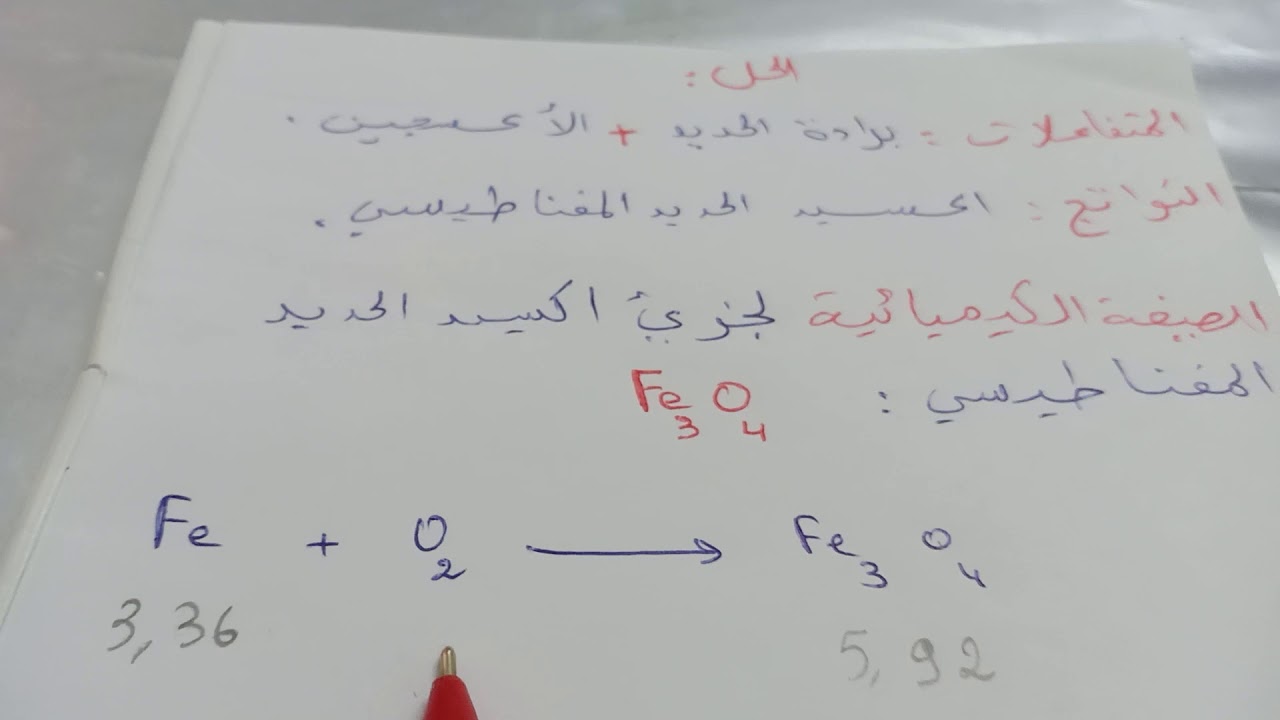 الحل :
المتفاعلات : برادة الحديد + الأكسجين .
النواتج : اكسيد الحديد المغناطيسي .
الصيغة الكيميائية لجزيئ اكسيد الحديد
المغناطيسي : Fe₃O₄
Fe + O₂ → Fe₃O₄
3,36 5,92